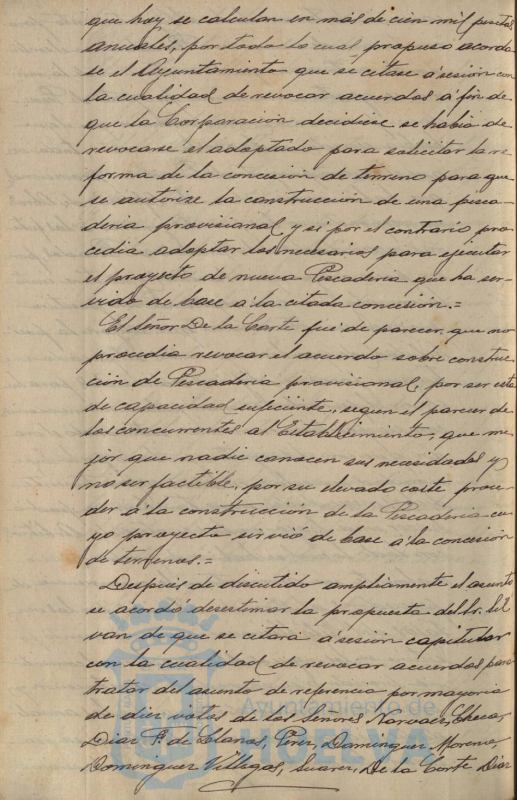 que hoy se calculan en más de cien mil pesetas
anuales, por todo lo cual propuso acorda-
se el Ayuntamiento que se citase á sesión con
la cualidad de revocar acuerdos á fin de
que la Corporación decidiese se había de
revocarse el adoptado para solicitar la re-
forma de la concesión de terreno para que
se autorize la construcción de una pesca-
deria provisional, y si por el contrario pro-
cedia adoptar los necesarios para ejecutar
el proyecto de nueva Pescaderia que ha ser-
vido de base á la citada concesión.=
El Señor De la Corte fué de parecer, que no
procedia revocar el acuerdo sobre construc-
ción de Pescaderia provisional, por ser esta
de capacidad suficiente, segun el parecer de
los concurrentes al Establecimiento, que me-
jor que nadie conocen sus necesidades y
no ser factible, por su elevado coste, proce-
der á la construcción de la Pescaderia cu-
yo proyecto sirvió de base á la concesión
de terrenos.=
Después de discutido ampliamente el asunto
se acordó desestimar la propuesta del Sr. Gil
van de que se citara á sesión capitular
con la cualidad de revocar acuerdos para
tratar del asunto de referencia por mayoria
de diez votos de los Señores Narvaez, Checa,
Diaz P. de Llanos, Perez, Dominguez Moreno,
Dominguez Villegas, Suarez, De la Corte Diaz
Ayuntamiento de
HUELVA